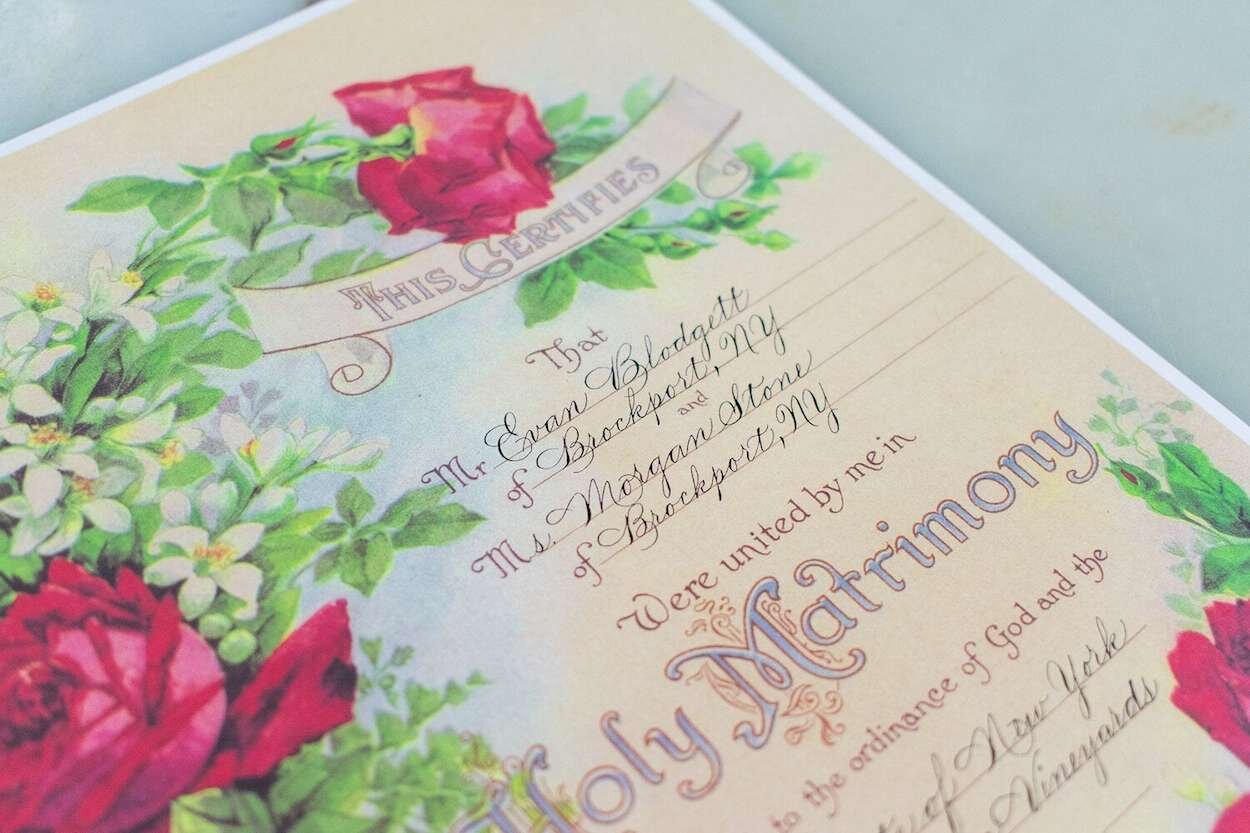 THIS CERTIFIES
That
Mr Evan Blodgett
of Brockport, NY
and
Ms. Morgan Stone
of Brockport, NY
Were united by me in
Holy Matrimony
to the ordinance of God and the
of New York
Vineyards